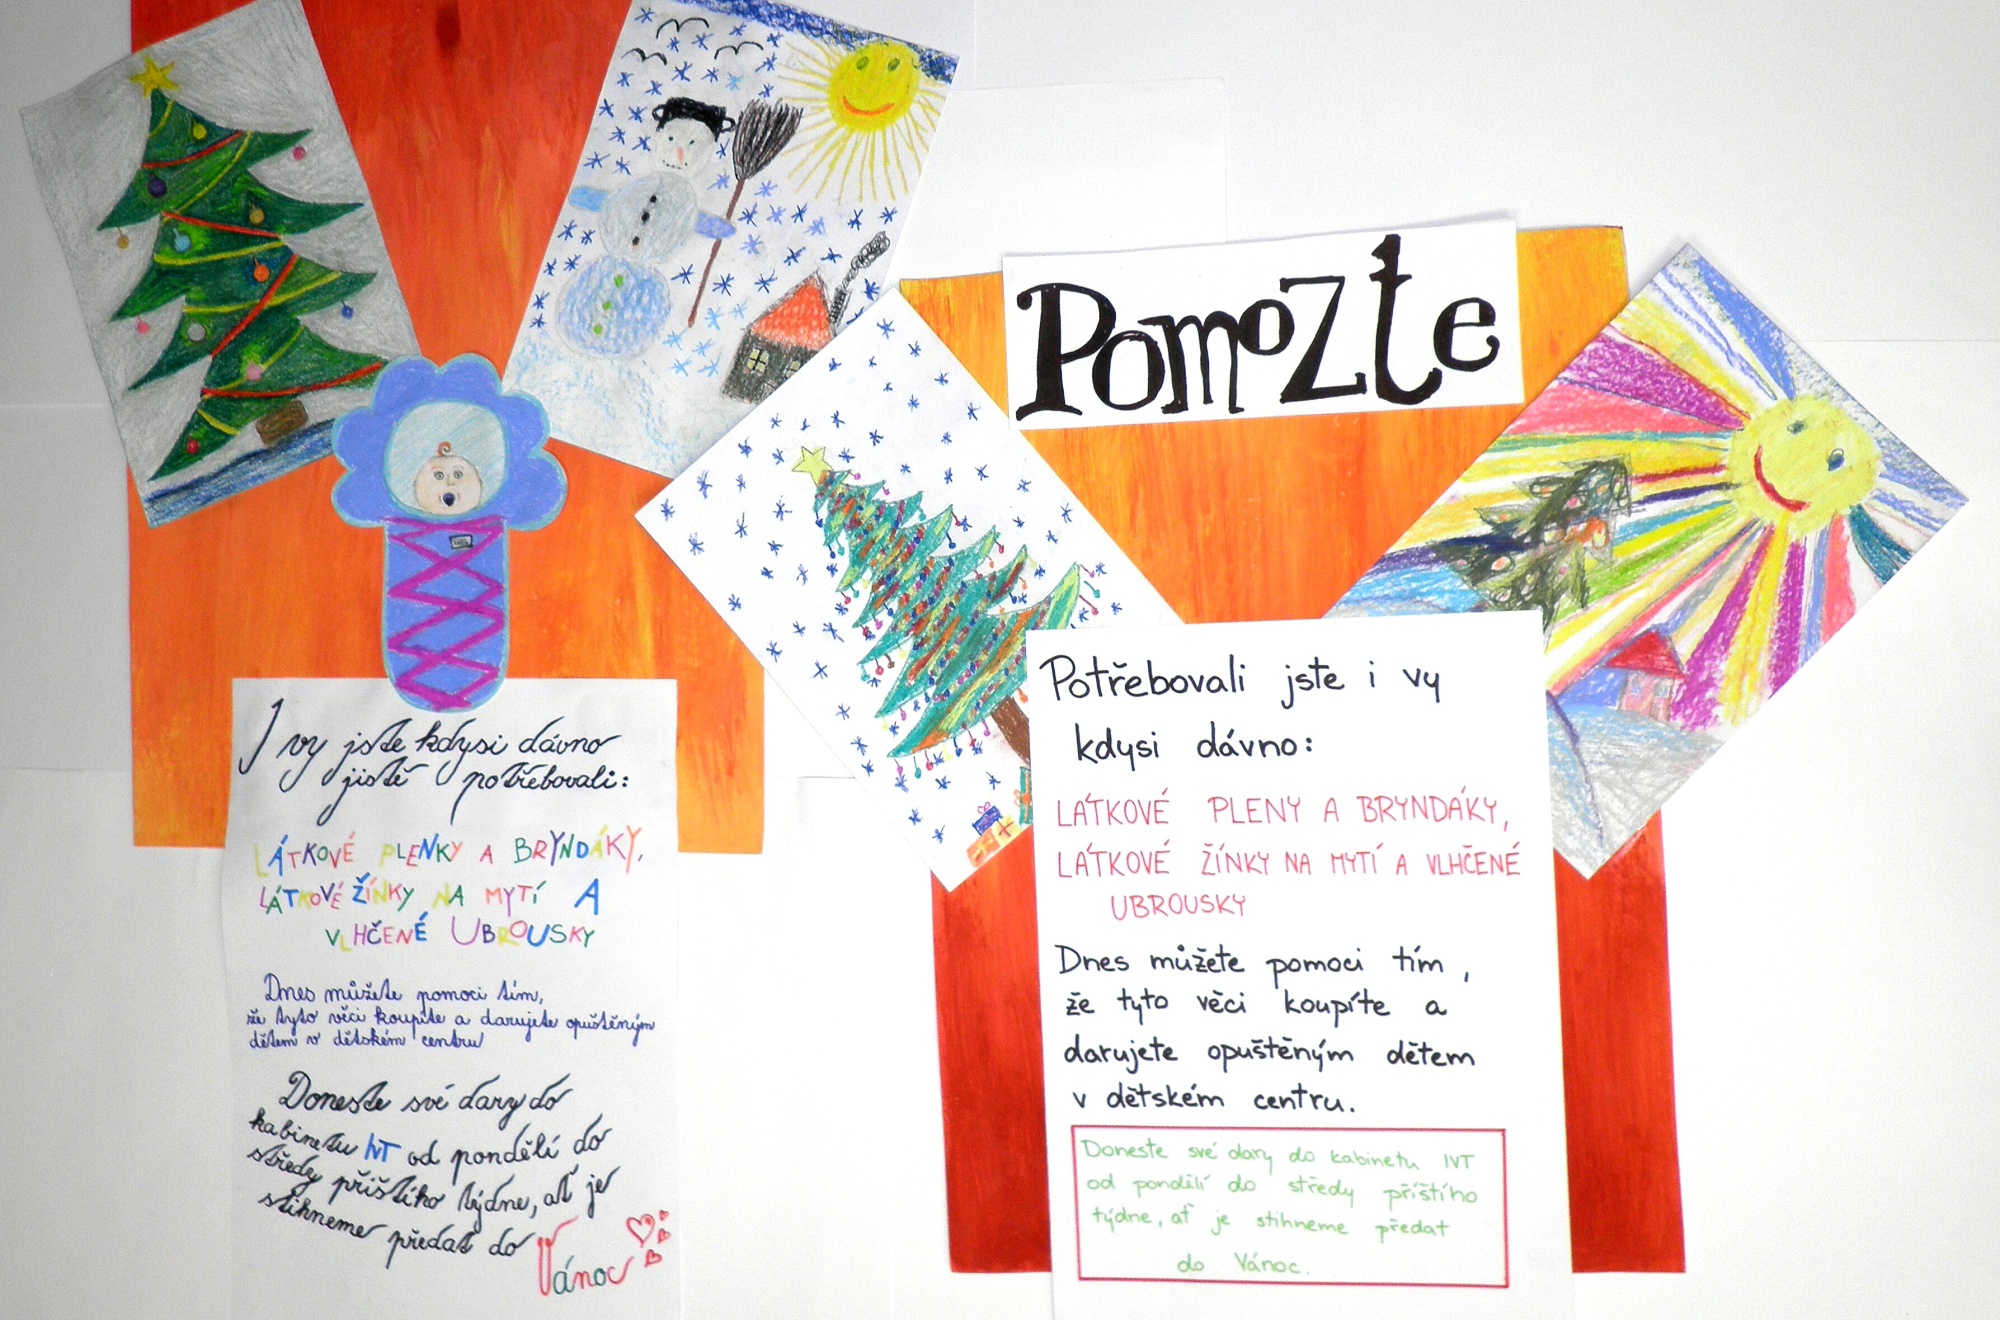 Pomozte
I vy jste kdysi dávno
jistě potřebovali:
LÁTKOVÉ PLENKY A BRYNDÁKY,
LÁTKOVÉ ŽÍNKY NA MYTÍ A
VLHČENÉ UBROUSKY
Dnes můžete pomoci tím,
že tyto věci koupíte a darujete opuštěným
dětem v dětském centru
Doneste své dary do
kabinetu IVT od pondělí do
středy příštího týdne, ať je
stihneme předat do Vánoc
Potřebovali jste i vy
kdysi dávno:
LÁTKOVÉ PLENY A BRYNDÁKY,
LÁTKOVÉ ŽÍNKY NA MYTÍ A VLHČENÉ
UBROUSKY
Dnes můžete pomoci tím,
že tyto věci koupíte a
darujete opuštěným dětem
v dětském centru.
Doneste své dary do kabinetu IVT
od pondělí do středy příštího
týdne, ať je stihneme předat
do Vánoc.